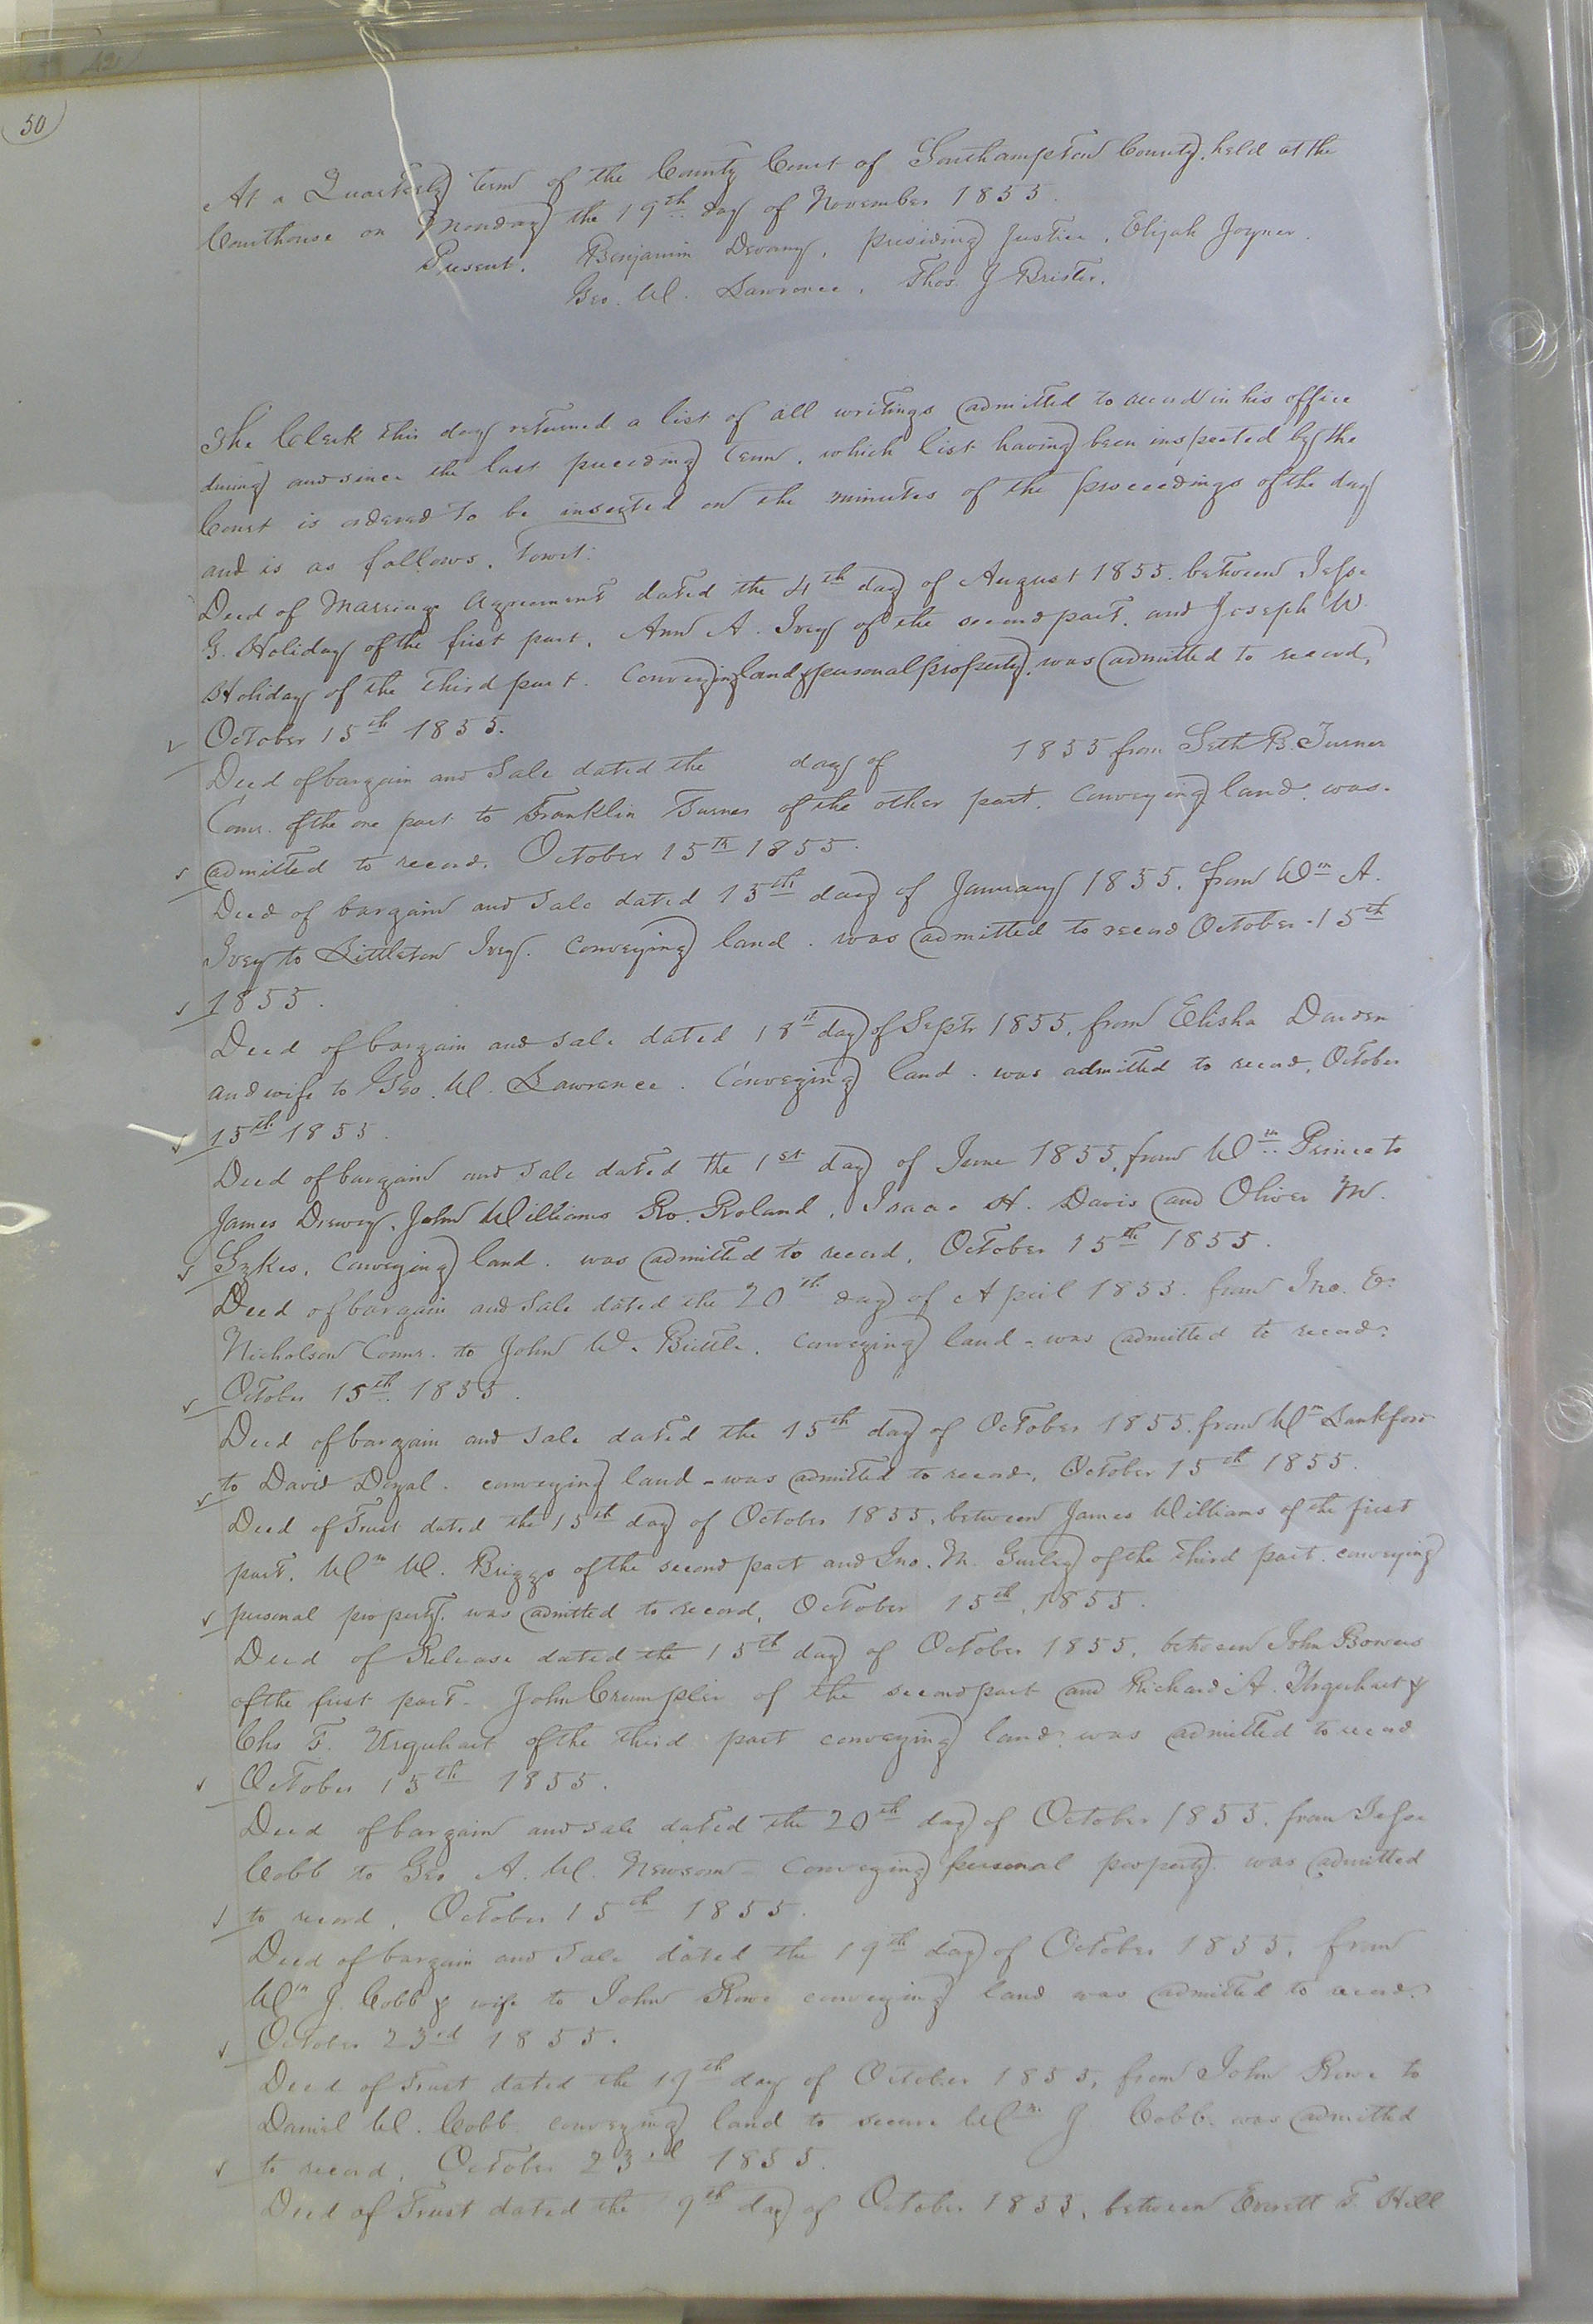 50
At a Quarterly term of the County Court of Southampton County, held at the
Courthouse on Monday the 19th day of November 1855.
Present, Benjamin Devany, presiding Justice, Elijah Joyner,
Geo. W. Lawrence, Thos. J Brister.
The Clerk this day returned a list of all writings admitted to record in his office
during and since the last preceding term, which list having been inspected by the
Court is ordered to be inserted on the minutes of the proceedings of the day
and is as follows, Towit:
Deed of Marriage Agreement dated the 4th day of August 1855. between Jesse
G. Holiday of the first part, Ann A. Ivey of the second part, and Joseph W.
Holiday of the third part. Conveying land & personal property, was admitted to record,
October 15th 1855.
Deed of bargain and Sale dated the day of 1855 from Seth B. Turner
Comr. of the one part to Franklin Turner of the other part. Conveying land. was
admitted to record, October 15th 1855.
Deed of bargain and Sale dated 15th day of January 1855, from Wm A.
Ivey to Littleton Ivey. Conveying land. was admitted to record October 15th
1855.
Deed of bargain and Sale dated 18th day of Septr 1855, from Elisha Darden
and wife to Geo. W. Lawrence. Conveying land. was admitted to record, October
15th 1855.
Deed of bargain and Sale dated the 1st day of June 1855, from Wm Prince to
James Drewry, John Williams Ro. Roland, Isaac H. Davis and Oliver M.
Sykes, Conveying land. was admitted to record, October 15th 1855.
Deed of bargain and Sale dated the 20th day of April 1855. from Jno. E.
Nicholson Comr. to John W. Brittle. Conveying land - was admitted to record.
October 15th 1855.
Deed of bargain and Sale dated the 15th day of October 1855. from Wm Lankford
to David Doyal. conveying land - was admitted to record, October 15th 1855.
Deed of Trust dated the 15th day of October 1855, between James Williams of the first
part, Wm W. Briggs of the second part and Jno. M. Gurley of the third part. conveying
personal property. was admitted to record, October 15th, 1855.
Deed of Release dated the 15th day of October 1855, between John Bowers
of the first part - John Crumpler of the second part and Richard A. Urquhart &
Chs F. Urquhart of the third part conveying land. was admitted to record
October 15th 1855.
Deed of bargain and sale dated the 20th day of October 1855, from Jesse
Cobb to Geo A. W. Newsom - Conveying personal property. was admitted
to record, October 15th 1855.
Deed of bargain and Sale dated the 19th day of October 1855, from
Wm J. Cobb & wife to John Rowe conveying land was admitted to record.
October 23rd 1855.
Deed of Trust dated the 19th day of October 1855, from John Rowe to
Daniel W. Cobb conveying land to secure Wm J Cobb. was admitted
to record, October 23rd 1855.
Deed of Trust dated the 9th day of October 1855, between Everett F. Hill